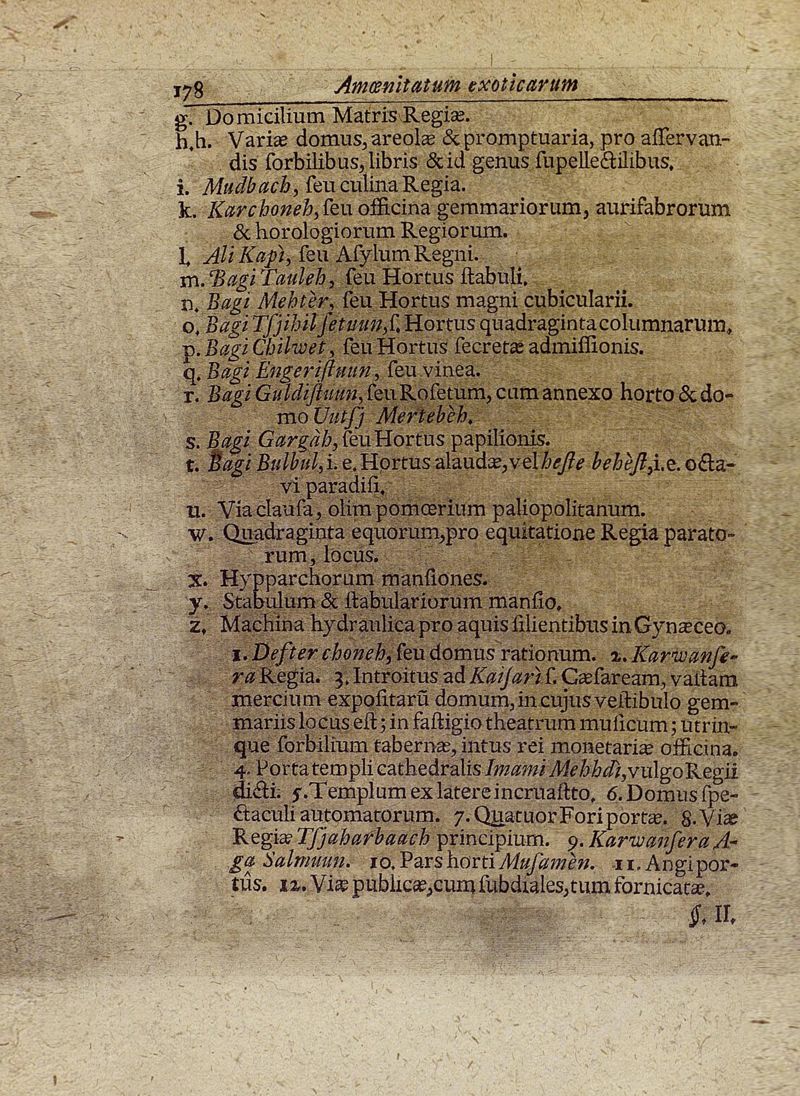 178 Amœnitatum exoticarum
g. Domicilium Matris Regiæ.
h.h. Variæ domus, areolæ & promptuaria, pro aſſervan-
dis ſorbilibus, libris & id genus ſupellectilibus.
i. Mudbach, ſeu culina Regia.
k. Karchoneh, ſeu officina gemmariorum, aurifabrorum
& horologiorum Regiorum.
l. Ali Kapi, ſeu Aſylum Regni.
m. Bagi Tauleh, ſeu Hortus ſtabuli.
n. Bagi Mehter, ſeu Hortus magni cubicularii.
o. Bagi Tſjihil ſetuun, ſ. Hortus quadraginta columnarum.
p. Bagi Chilwet, ſeu Hortus ſecretæ admiſſionis.
q. Bagi Engeriſtuun, ſeu vinea.
r. Bagi Guldiſtuun, ſeu Roſetum, cum annexo horto & do-
mo Uutſj Mertebeh.
s. Bagi Gargàh, ſeu Hortus papilionis.
t. Bagi Bulbul, i. e. Hortus alaudæ, vel heſte beheſt, i.e. octa-
vi paradiſi.
u. Via clauſa, olim pomœrium paliopolitanum.
w. Quadraginta equorum, pro equitatione Regia parato-
rum, locus.
x. Hypparchorum manſiones.
y. Stabulum & ſtabulariorum manſio.
z. Machina hydraulica pro aquis ſilientibus in Gynæceo.
1. Defter choneh, ſeu domus rationum. 2. Karwanſe-
ra Regia. 3. Introitus ad Kaiſarì ſ. Cæſaream, vaſtam
mercium expoſitarũ domum, in cujus veſtibulo gem-
mariis locus eſt; in faſtigio theatrum muſicum; utrin-
que ſorbilium tabernæ, intus rei monetariæ officina.
4. Porta templi cathedralis Imami Mehhdì, vulgo Regii
dicti. 5. Templum ex latere incruaſtto. 6. Domus ſpe-
ctaculi automatorum. 7. Quatuor Fori portæ. 8. Viæ
Regiæ Tſjaharbaach principium. 9. Karwanſera A-
ga Salmuun. 10. Pars horti Muſamèn. 11. Angipor-
tûs. 12. Viæ publicæ, cum ſubdiales, tum fornicatæ.
§. II.